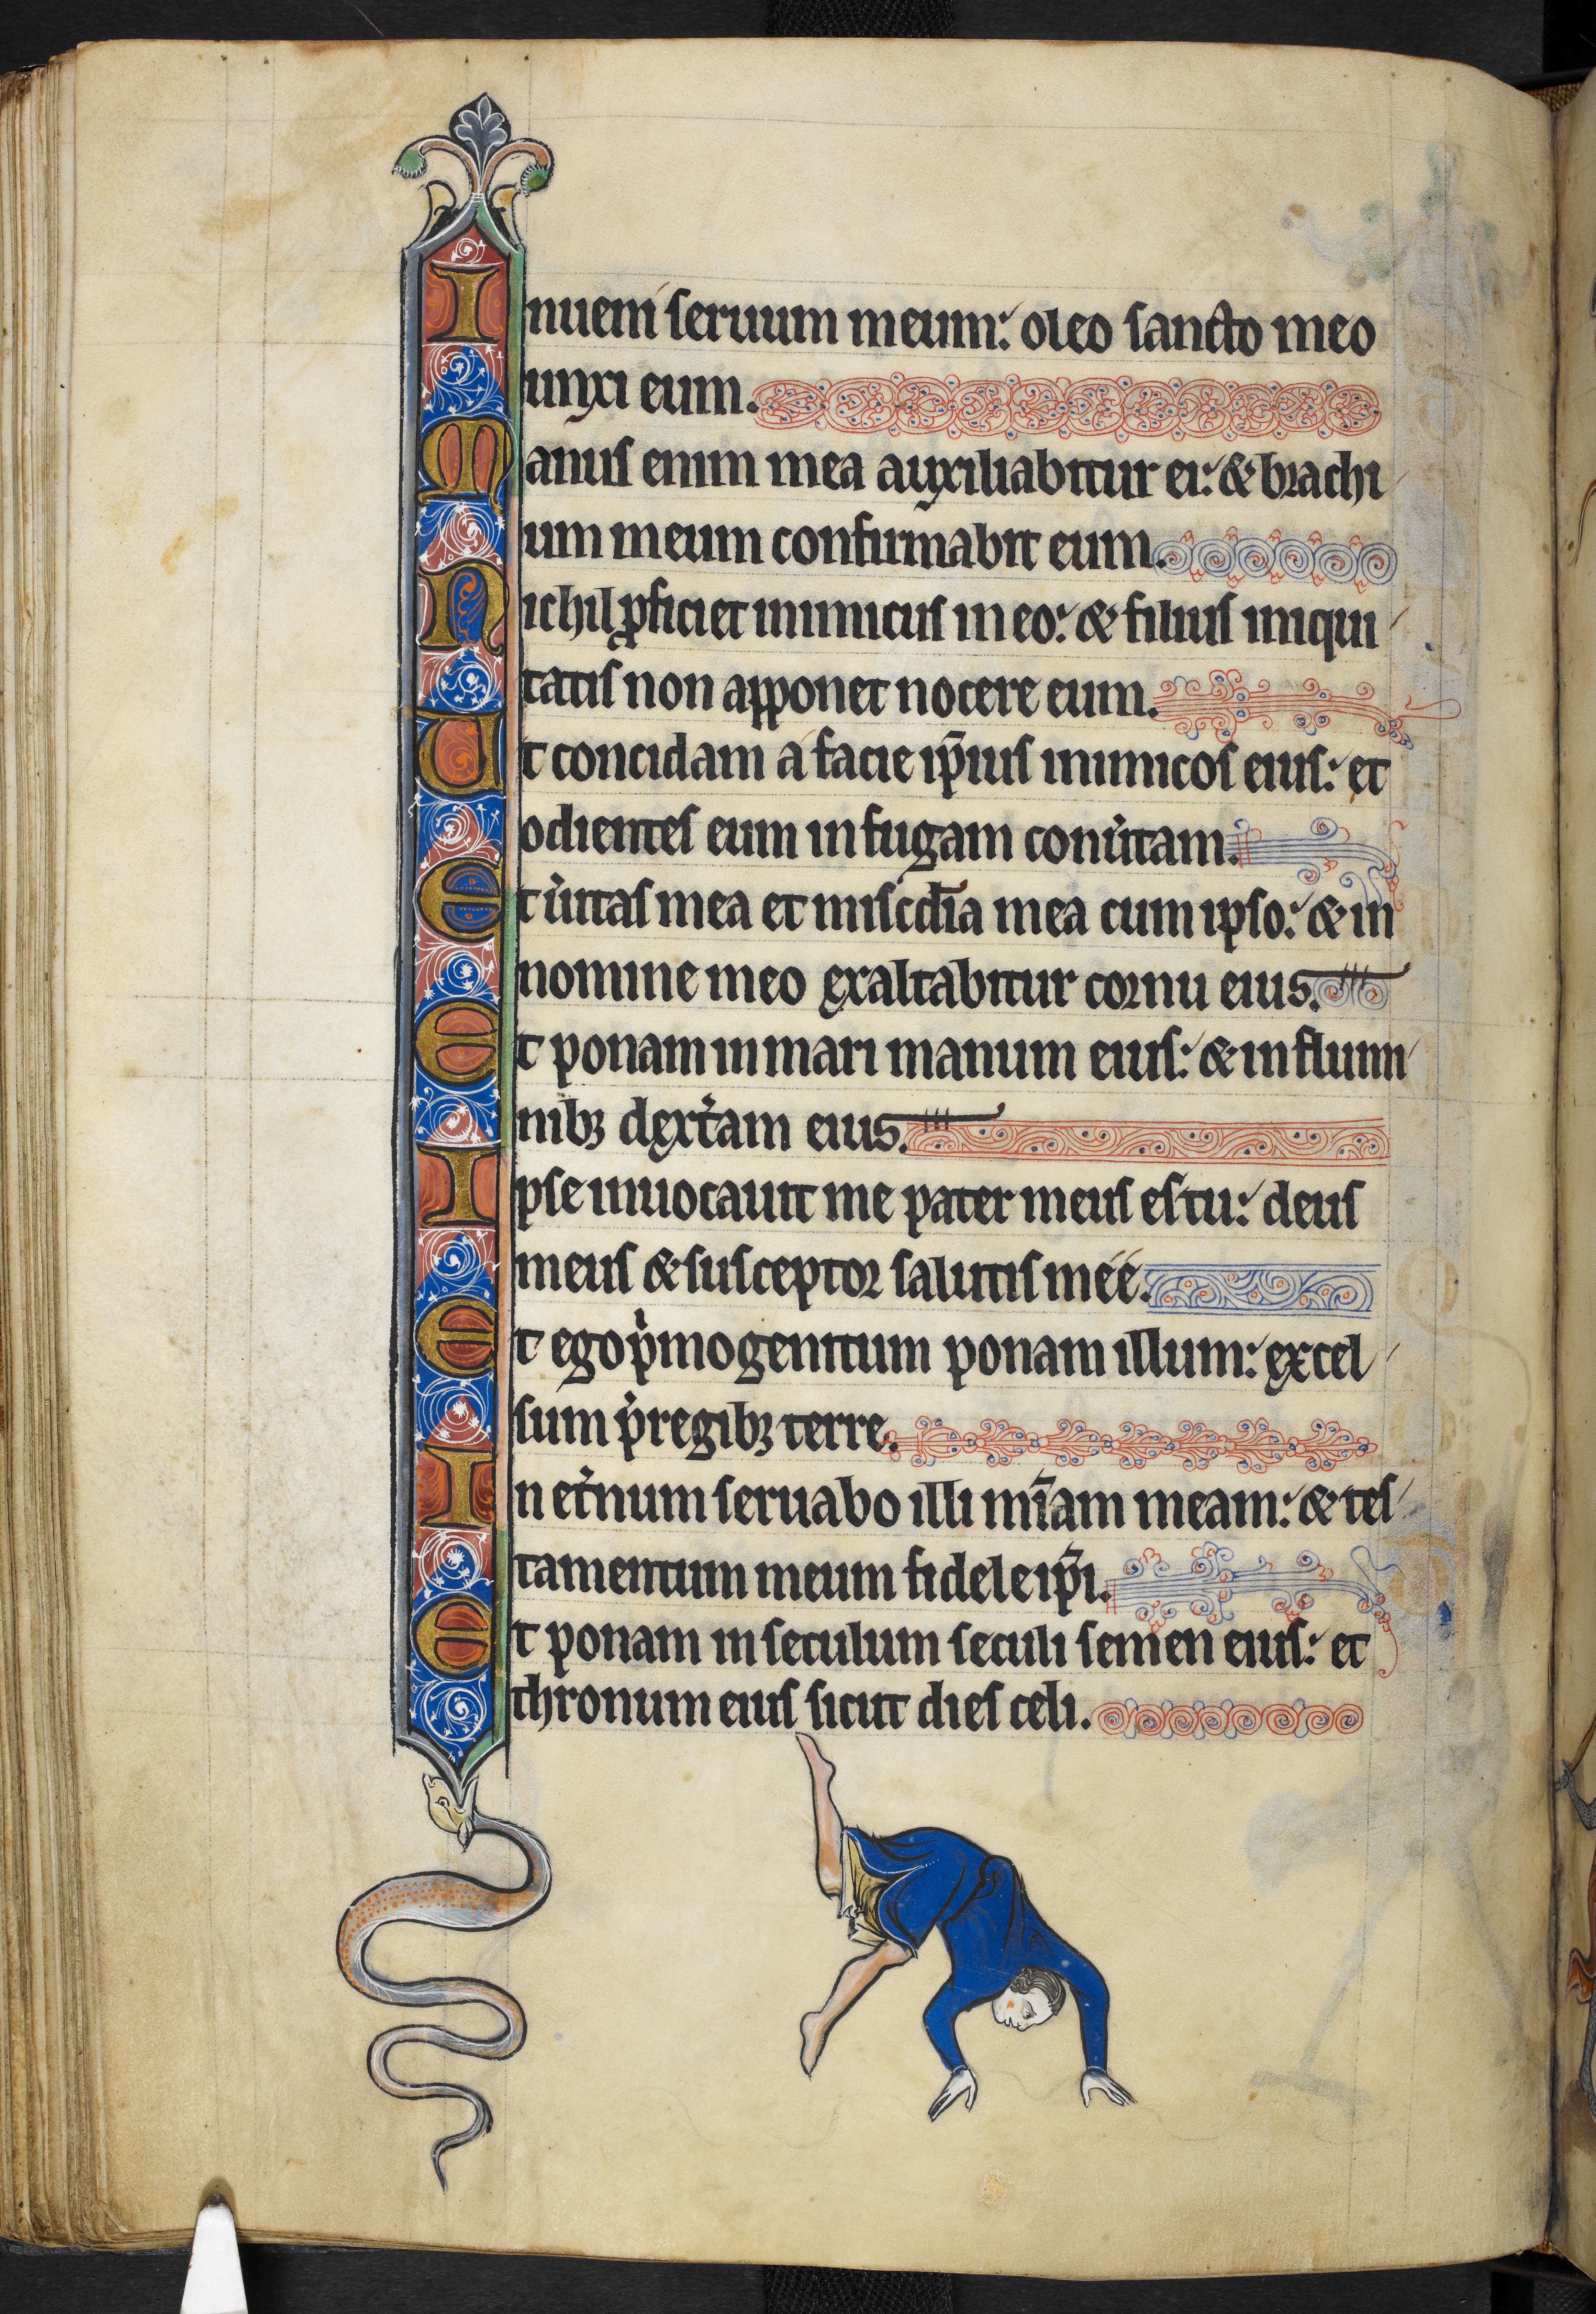 Inueni seruum meum: oleo sancto meo
unxi eum.
Manus enim mea auxiliabitur ei: & brachi
um meum confirmabit eum.
Nichil ꝓficiet inimicus in eo: & filius iniqui
tatis non apponet nocere eum.
Ut concidam a facie ip̄ius inimicos eius: et
odientes eum in fugam conu͛tam.
Et u͛itas mea et misc̄dia mea cum ipso: & in
nomine meo exaltabitur cornu eius.
Et ponam in mari manum eius: & in flumi
nibꝫ dext͛am eius.
Ipse inuocauit me pater meus es tu: deus
meus & susceptor salutis mee.
Et ego pⁱmogenitum ponam illum: excel
sum p̄ regibꝫ terre.
In et͛num seruabo illi mīam meam: & tes
tamentum meum fidele ip̄i.
Et ponam in seculum seculi semen eius: et
thronum eius sicut dies celi.